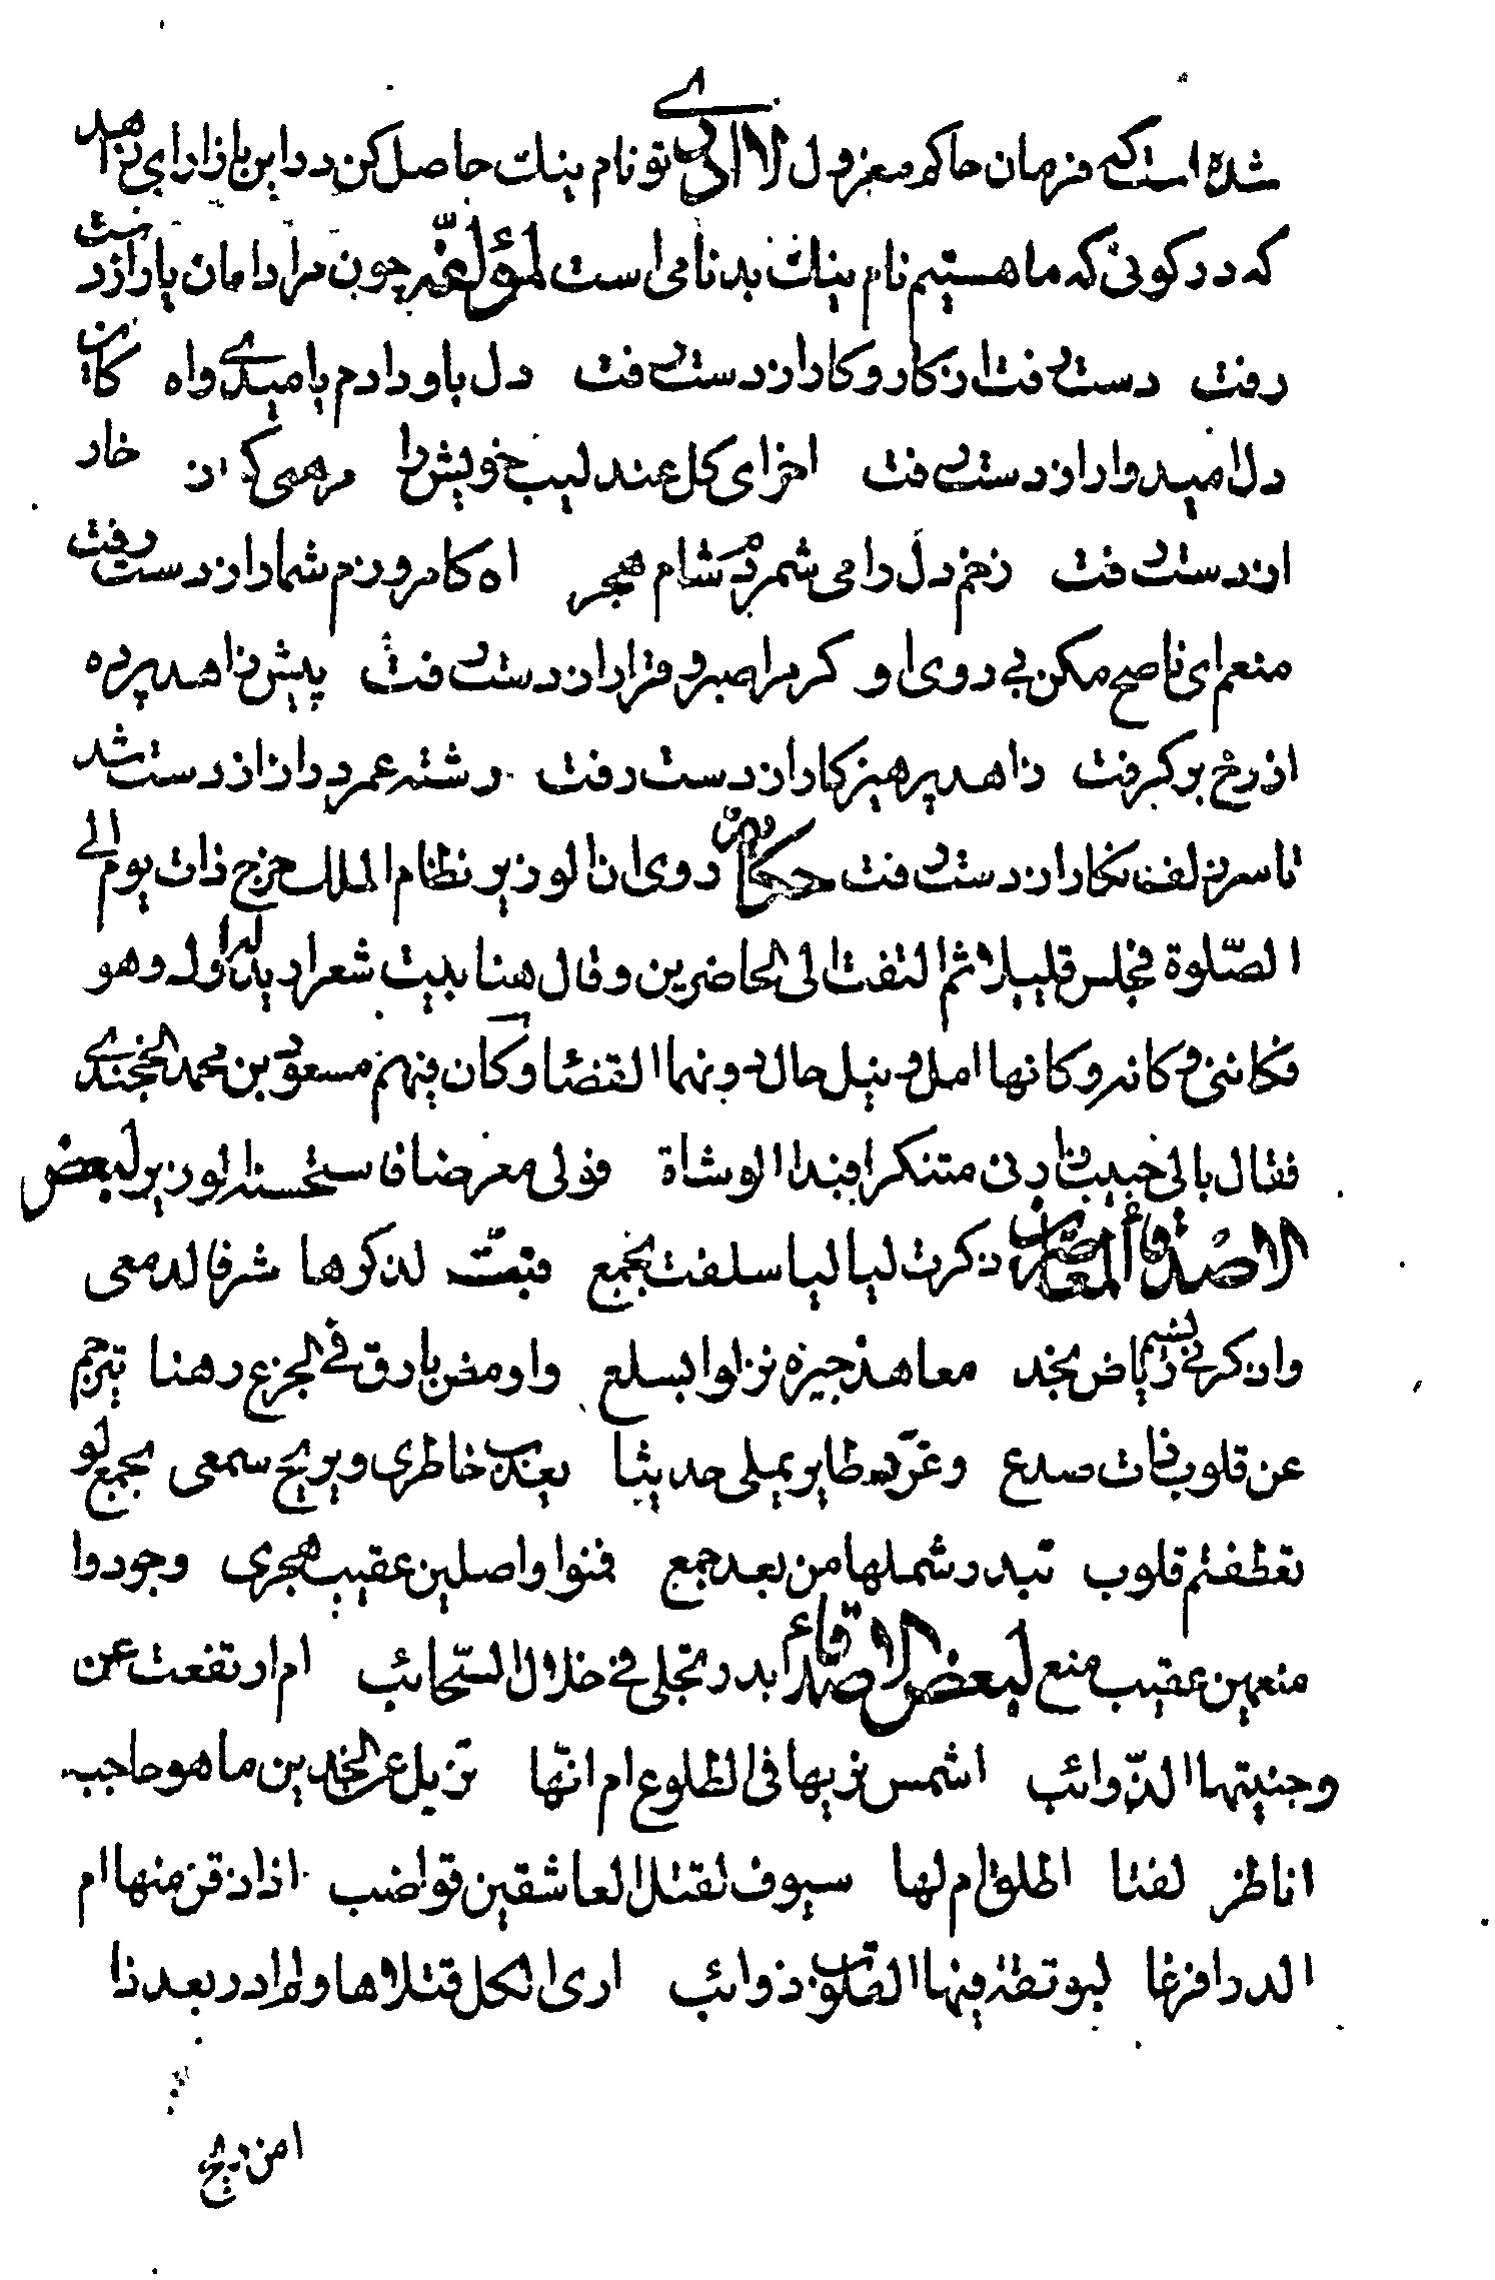 شده است که فرمان حاکم معزول لا ادری تو نام نیک حاصل کن در این بازار ای زاهد
که در کوئی که ما هستیم نام نیک بدنامی است لمؤلفه چون مرا دامان یار از دست
رفت دست رفت از کار و کار از دست رفت دل باو دادم بامیدی واه کاین
دل امیدوار از دست رفت اخر ای کل عندلیب خویش را مرهمی کز خار
از دست رفت زخم دل را می شمردم شام هجر اه کامروزم شمار از دست رفت
منعم ای ناصح مکن بی روی او کز مرا صبر و قرار از دست رفت پیش زاهد پرده
از رخ بر کرفت زاهد پرهیزکار از دست رفت رشته عمر دراز از دست شد
تا سر زلف نکار از دست رفت حکایه روی ان الوزیر نظام الملک خرج ذات یوم الی
الصّلوة فجلس قلیلا ثم التفت الی الحاضرین وقال هنا بیت شعر ارید له اول وهو
فکاننی وکانه وکانها امل ونیل حال دونهما القضا وکان فیهم مسعود بن محمد الخجندی
فقال بابی حبیب زارنی متنکرا فبدا الوشاة فولی معرضا فاستحسنه الوزیر لبعض
الاصدقاء المعاصرین ذکرت لیالیا سلفت بجمع فبتّ لذکرها شرقا لدمعی
واذکرنی نسیم ریاض نجد معاهد جیرة نزلوا بسلع واومض بارق فی الجزع وهنا یترجم
عن قلوب ذات صدع وغرّد طایر یملی حدیثا یعذب خاطری ویریح سمعی بجمع لو
تعطفتم قلوب تبدد شملها من بعد جمع فمنوا واصلین عقیب هجری وجودوا
منعمین عقیب منع لبعض الاصدقاء ابدر تجلی فی خلال السّحائب ام ارتفعت عن
وجنیتها الذّوائب اشمس نریها فی الطلوع ام انّها تزیل عن الخدین ما هو حاجب
اناظر لفتا الطلق ام لها سیوف لقتل العاشقین قواضب اذا ذقن منها ام
الدر افرغا لبوتقة فیها القلوب ذوائب اری الکل قتلاها ولم ادر بعد ذا
امن ریح